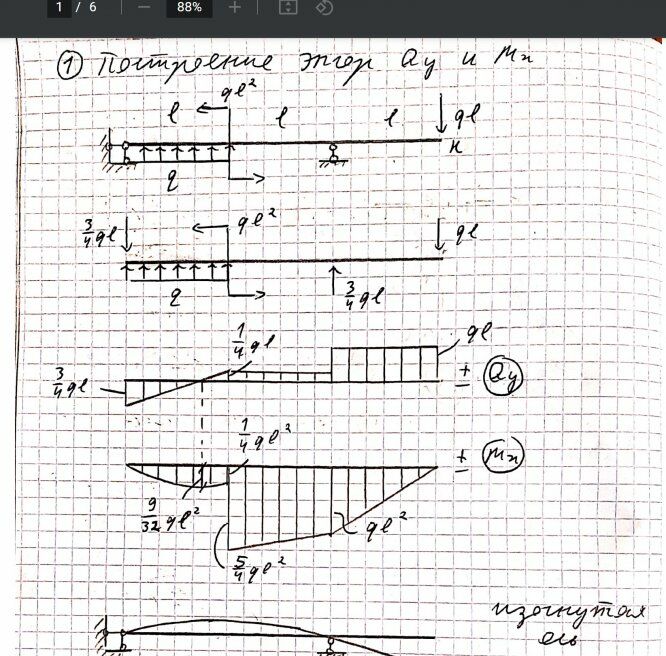 1 / 6 — 88% +
① Построение эпюр Qy и Mx
ql²
l l l ql
K
q
3/4 ql ql² ql
q 3/4 ql
1/4 ql ql
3/4 ql ± Qy
1/4 ql² ± Mx
9/32 ql² ql²
5/4 ql²
изогнутая
ось